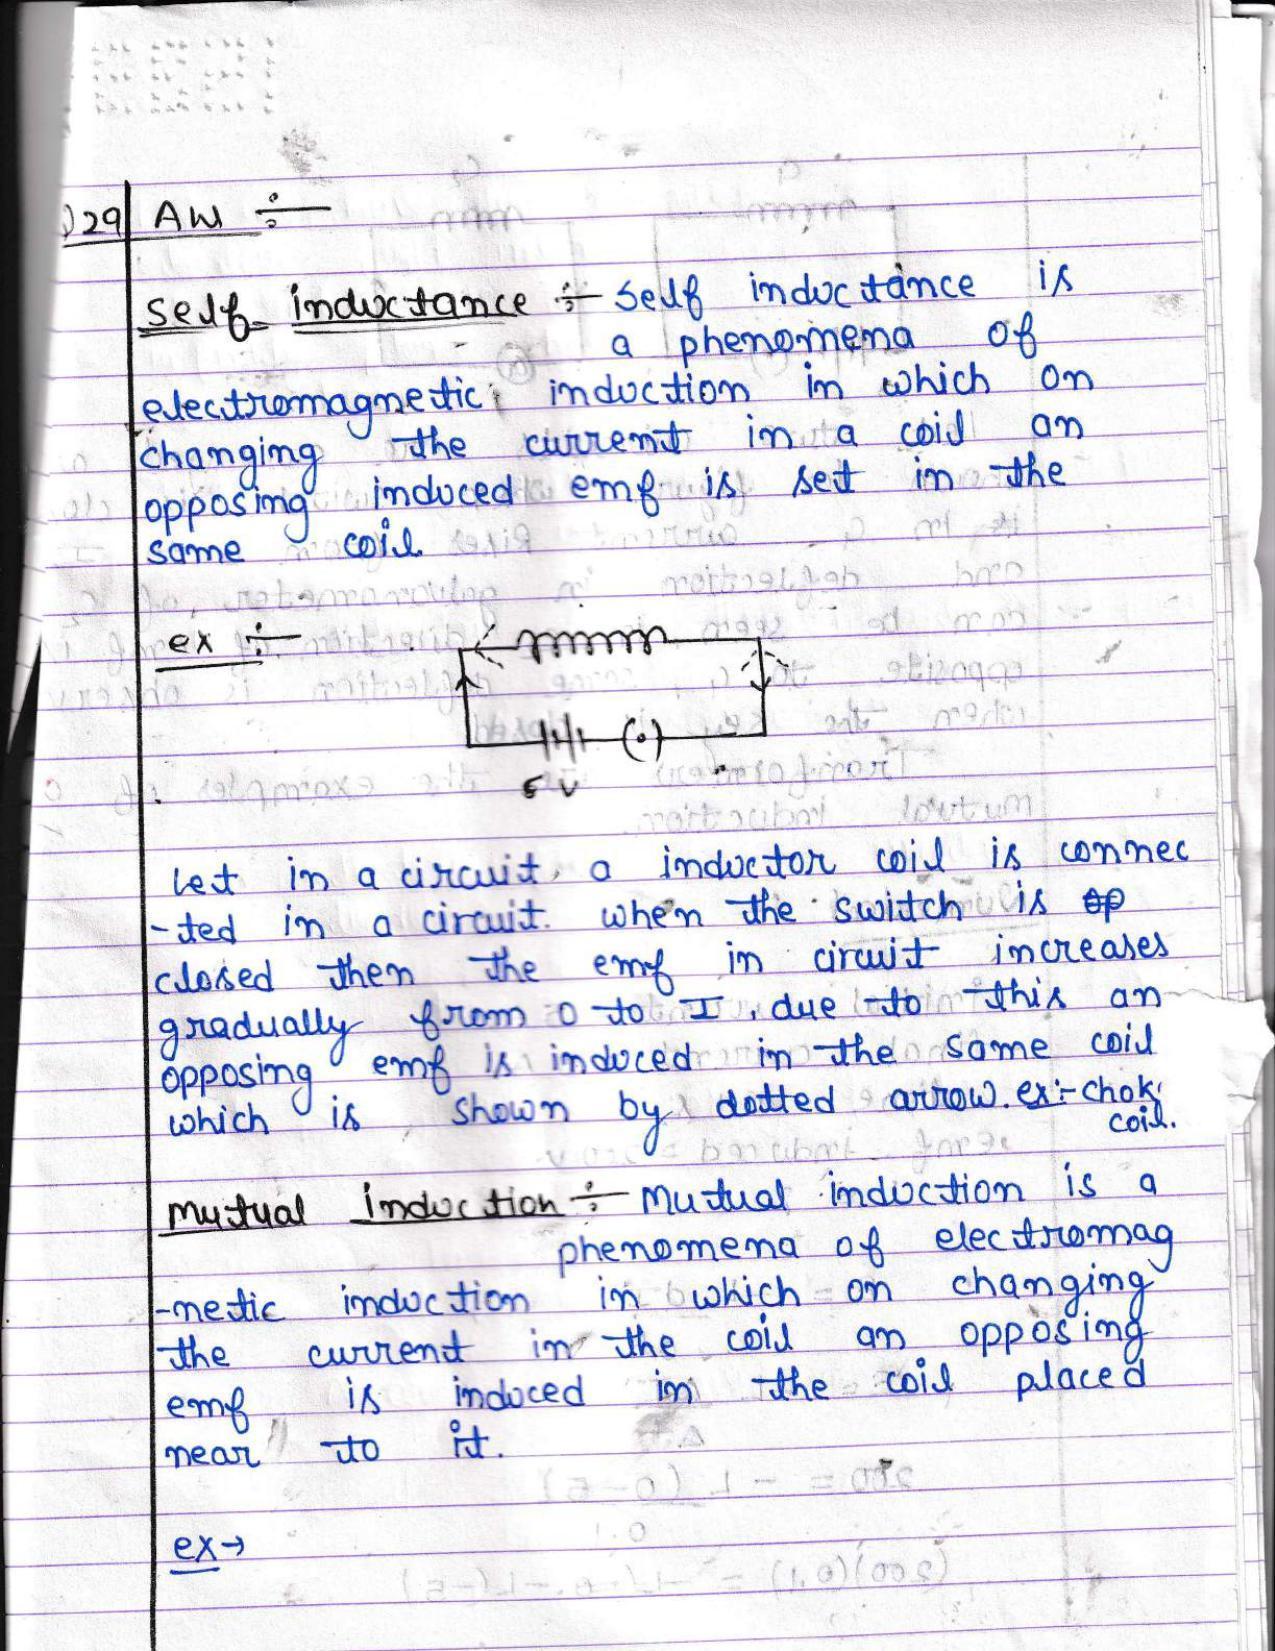 29 Aw ÷
self inductance ÷ self inductance is
a phenomena of
electromagnetic induction in which on
changing the current in a coil an
opposing induced emf is set in the
same coil.
ex ÷
6 V
Let in a circuit, a inductor coil is connec
-ted in a circuit. when the switch is op
closed then the emf in circuit increases
gradually from 0 to I, due to this an
opposing emf is induced in the same coil
which is shown by dotted arrow. ex:- chok
coil.
Mutual induction ÷ Mutual induction is a
phenomena of electromag
-netic induction in which on changing
the current in the coil an opposing
emf is induced in the coil placed
near to it.
ex →